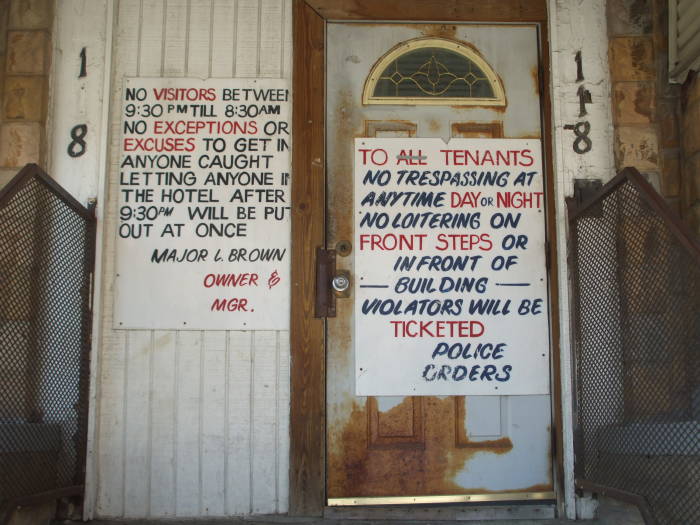 1
8
NO VISITORS BETWEEN
9:30 PM TILL 8:30AM
NO EXCEPTIONS OR
EXCUSES TO GET IN
ANYONE CAUGHT
LETTING ANYONE IN
THE HOTEL AFTER
9:30PM WILL BE PUT
OUT AT ONCE
MAJOR L. BROWN
OWNER &
MGR.
TO ALL TENANTS
NO TRESPASSING AT
ANYTIME DAY OR NIGHT
NO LOITERING ON
FRONT STEPS OR
IN FRONT OF
— BUILDING —
VIOLATORS WILL BE
TICKETED
POLICE
ORDERS
1
1
8